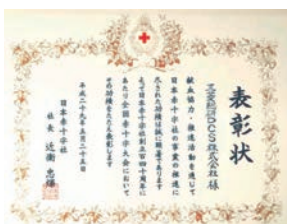 表彰状
三菱総研DCS株式会社 様
献血協力・推進活動を通して
日本赤十字社の事業の推進に
尽された功績は誠に顕著であります
よって日本赤十字社創立百四十周年に
あたり全国赤十字大会において
その功績をたたえ表彰します
平成二十九年五月二十五日
日本赤十字社
社長 近衞忠煇